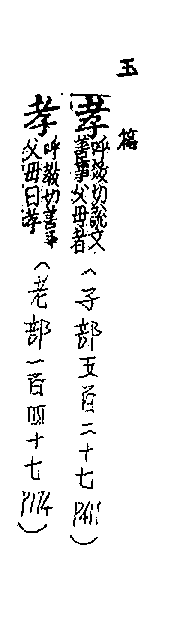 玉篇
孝呼效切說文善事父母者（子部五百二十七P411）
孝呼教切善事父母曰孝（老部一百四十七P174）